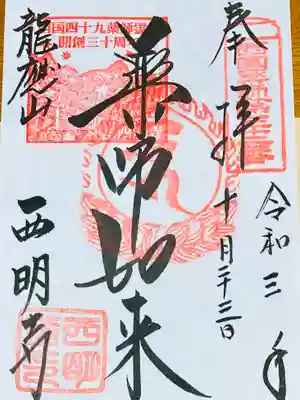 奉拝
令和三年
十月二十三日
薬師如来
西国薬師四十九霊場
開創三十周年
龍應山
西明寺